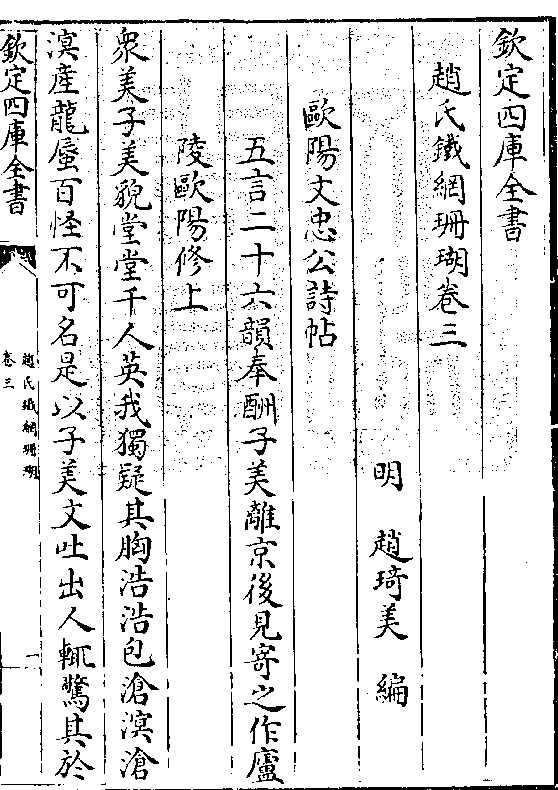 欽定四庫全書
趙氏鐵網珊瑚卷三
明 趙琦美 編
歐陽文忠公詩帖
五言二十六韻奉酬子美離京後見寄之作廬
陵歐陽修上
衆美子美貌堂堂千人英我獨疑其胸浩浩包滄溟滄
溟產龍蜃百怪不可名是以子美文吐出人輒驚其於
欽定四庫全書
趙氏鐵網珊瑚
卷三
一